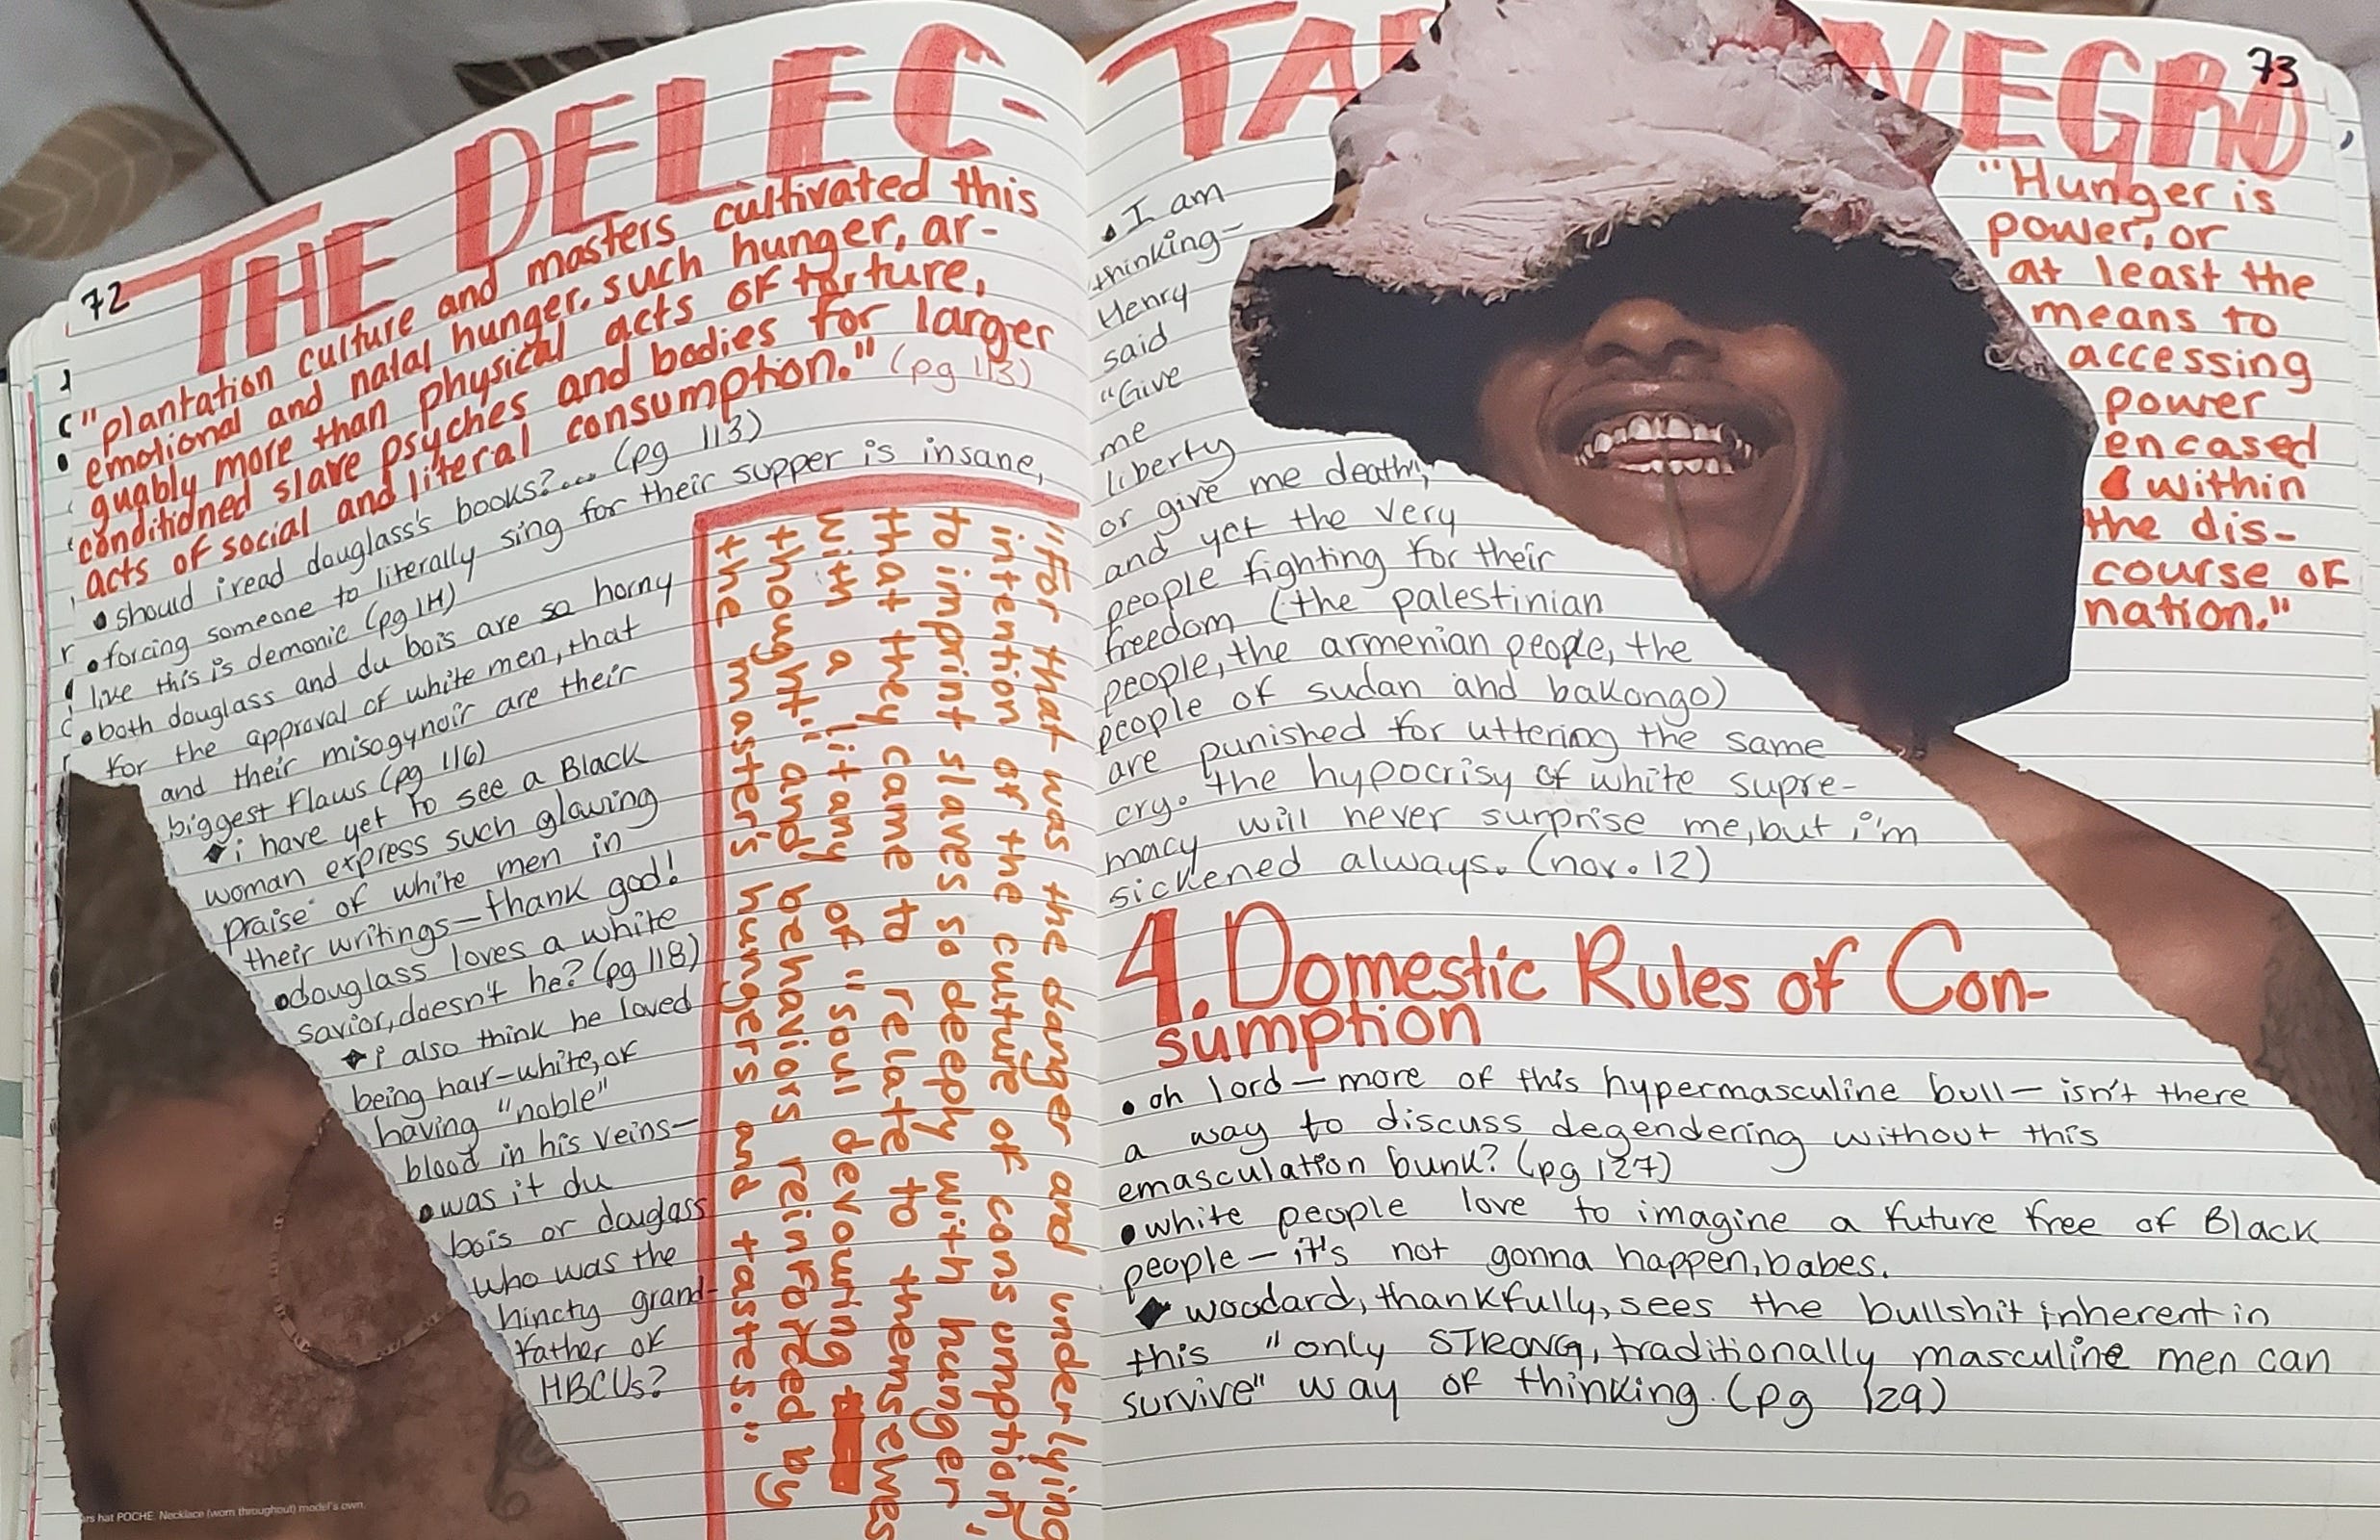 72
THE DELEC-
"plantation culture and masters cultivated this
emotional and natal hunger. such hunger, ar-
guably more than physical acts of torture,
conditioned slave psyches and bodies for larger
acts of social and literal consumption." (pg 113)
• should i read douglass's books?... (pg 113)
• forcing someone to literally sing for their supper is insane,
like this is demonic (pg 114)
• both douglass and du bois are so horny
for the approval of white men, that
and their misogynoir are their
biggest flaws (pg 116)
i have yet to see a Black
woman express such glowing
praise of white men in
their writings—thank god!
• douglass loves a white
savior, doesn't he? (pg 118)
i also think he loved
being half-white, or
having "noble"
blood in his veins—
• was it du
bois or douglass
who was the
hincty grand-
father of
HBCUs?
"For that was the danger and underlying
intention of the culture of consumption,
to imprint slaves so deeply with hunger
that they came to relate to themselves
with a litany of "soul devouring
thought" and behaviors reinforced by
the master's hungers and tastes."
ars hat POCHE. Necklace (worn throughout) model's own.
73
TA NEGRO
• I am
thinking—
Henry
said
"Give
me
liberty
or give me death,"
and yet the very
people fighting for their
freedom (the palestinian
people, the armenian people, the
people of sudan and bakongo)
are punished for uttering the same
cry. the hypocrisy of white supre-
macy will never surprise me, but i'm
sickened always. (nov. 12)
"Hunger is
power, or
at least the
means to
accessing
power
encased
within
the dis-
course of
nation."
4. Domestic Rules of Con-
sumption
• oh lord—more of this hypermasculine bull—isn't there
a way to discuss degendering without this
emasculation bunk? (pg 127)
• white people love to imagine a future free of Black
people—it's not gonna happen, babes.
woodard, thankfully, sees the bullshit inherent in
this "only STRONG, traditionally masculine men can
survive" way of thinking. (pg 129)